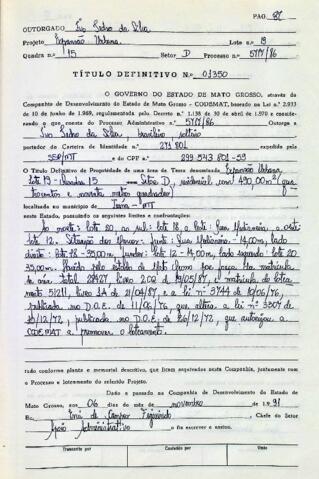 PAG. 87
OUTORGADO Luz Pedro da Silva
Projeto Expansão Urbana Lote n.º 19
Quadra n.º 15 Setor D Processo n.º 5777/86
TÍTULO DEFINITIVO N.º 01350
O GOVERNO DO ESTADO DE MATO GROSSO, através da
Companhia de Desenvolvimento do Estado de Mato Grosso - CODEMAT, baseado na Lei n.º 2.933
de 10 de junho de 1969, regulamentada, pelo Decreto n.º 1.138 de 30 de abril de 1970 e consideran-
do o que consta do Processo Administrativo n.º 5777/86 Outorga a
Pedro da Silva, brasileiro, solteiro
portador da Carteira de Identidade n.º 271801 expedida pela
SSP/MT e do CPF n.º 299.543.801-59
O Título Definitivo de Propriedade de uma área de Terras denominada Expansão Urbana
Lote 19 - Quadra 15 Setor D, residencial, com 490,00 m² (quatro
centos e noventa metros quadrados)
localizada no município de MT
neste Estado, possuindo os seguintes limites e confrontações:
Ao norte: lote 20, ao sul: lote 18, a leste: Rua a oeste
lote 12. frente: Rua - 14,00m, lado
direito: lote 18 - 35,00m, fundos: lote 12 - 14,00m, lado esquerdo: lote 20
35,00m. pelo estado de Mato Grosso matrícula
da área total 28427 livro 2 19/03/87, e matrícula do loteamento
51211, livro 2A de 21/04/87, e a lei n.º 3744 de 10/06/76,
publicada no D.O.E. de 11/06/76 que altera a lei n.º 3307 de
18/12/72, publicada no D.O.E. de 26/12/72, que autorizou a
CODEMAT a promover o loteamento.
tudo conforme planta e memorial descritivo, que ficam arquivados nesta Companhia, juntamente com
o Processo e loteamento do referido Projeto.
Dado e passado na Companhia de Desenvolvimento do Estado de
Mato Grosso, aos 06 dias do mês de novembro de 1.991
Eu, de Campos Figueiredo Chefe do Setor
Apoio Administrativo o fiz escrever e assino.
Transcrito por Conferido por Visto